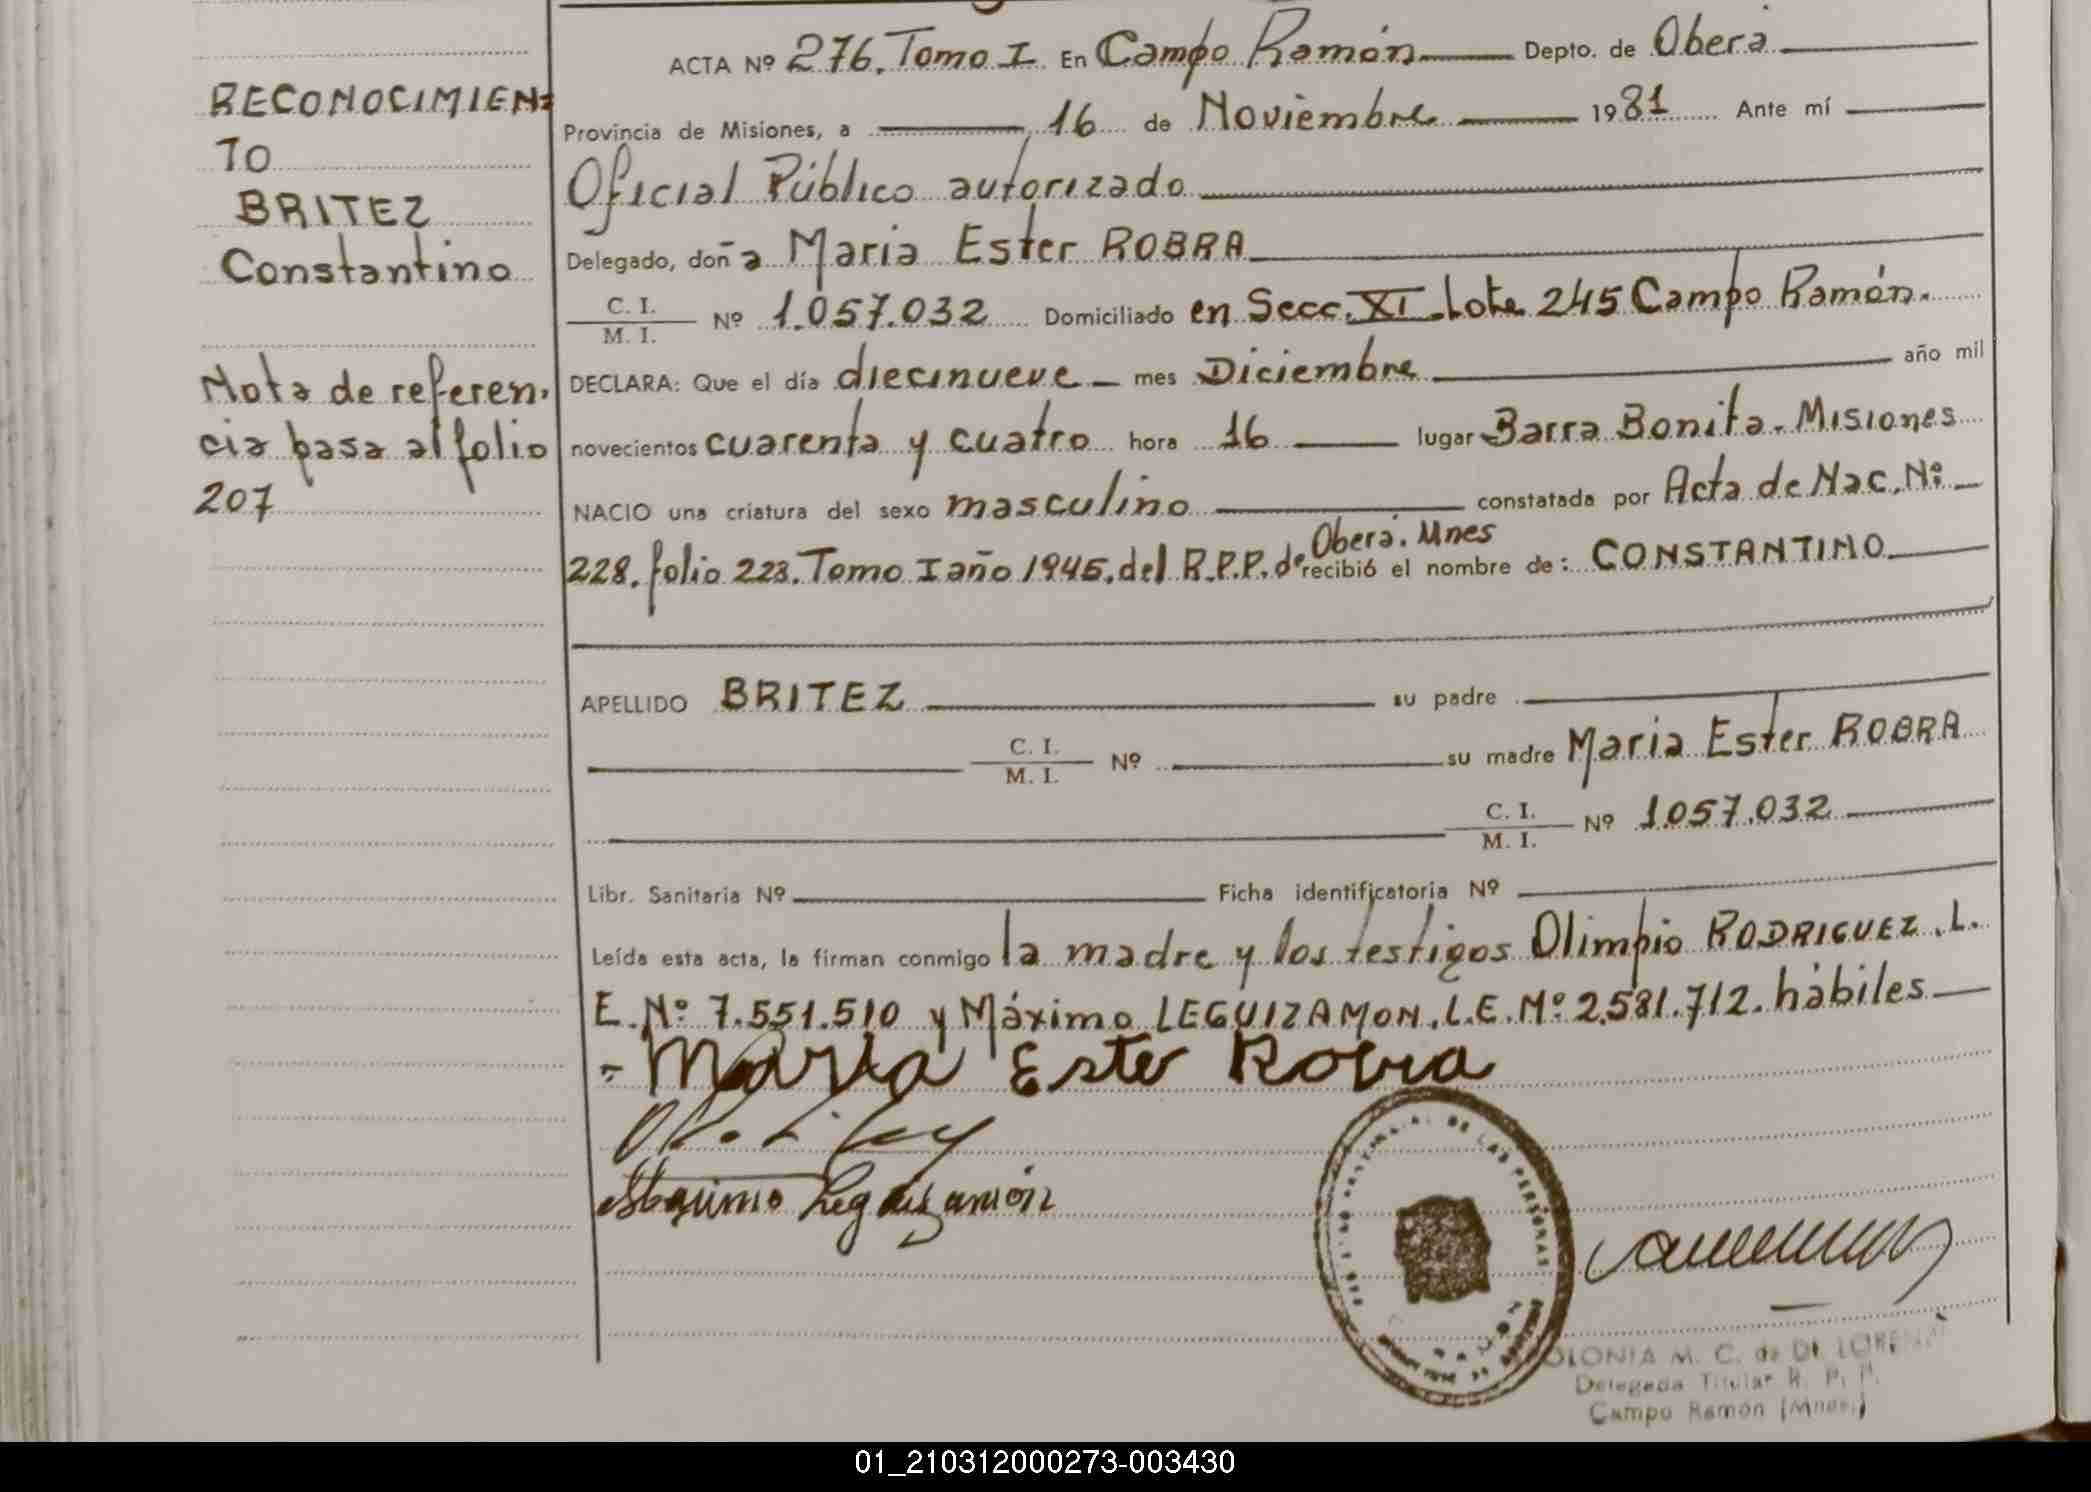 RECONOCIMIEN=
TO
BRITEZ
Constantino
Nota de referen-
cia pasa al folio
207
ACTA Nº 276. Tomo I. En Campo Ramón Depto. de Oberá
Provincia de Misiones, a 16 de Noviembre 1981 Ante mí
Oficial Público autorizado
Delegado, doña Maria Ester ROBRA
C. I.
M. I. Nº 1.057.032 Domiciliado en Secc. XI. Lote 245 Campo Ramón.
DECLARA: Que el día diecinueve mes Diciembre año mil
novecientos cuarenta y cuatro hora 16 lugar Barra Bonita. Misiones
NACIO una criatura del sexo masculino constatada por Acta de Nac. Nº
228. folio 223. Tomo I año 1945. del R.P.P. de Oberá. Mnes recibió el nombre de: CONSTANTINO
APELLIDO BRITEZ su padre
C. I.
M. I. Nº su madre Maria Ester ROBRA
C. I.
M. I. Nº 1.057.032
Libr. Sanitaria Nº Ficha identificatoria Nº
Leída esta acta, la firman conmigo la madre y los testigos Olimpio RODRIGUEZ. L.
E. Nº 7.551.510 y Máximo LEGUIZAMON. L.E. Nº 2.581.712. hábiles
Maria Ester Robra
Maximo Leguizamón
DE LAS PERSONAS
OLONIA M. C. de DI LORENZ
Delegada Titular R. P. P.
Campo Ramón (Mnes.)
01_210312000273-003430